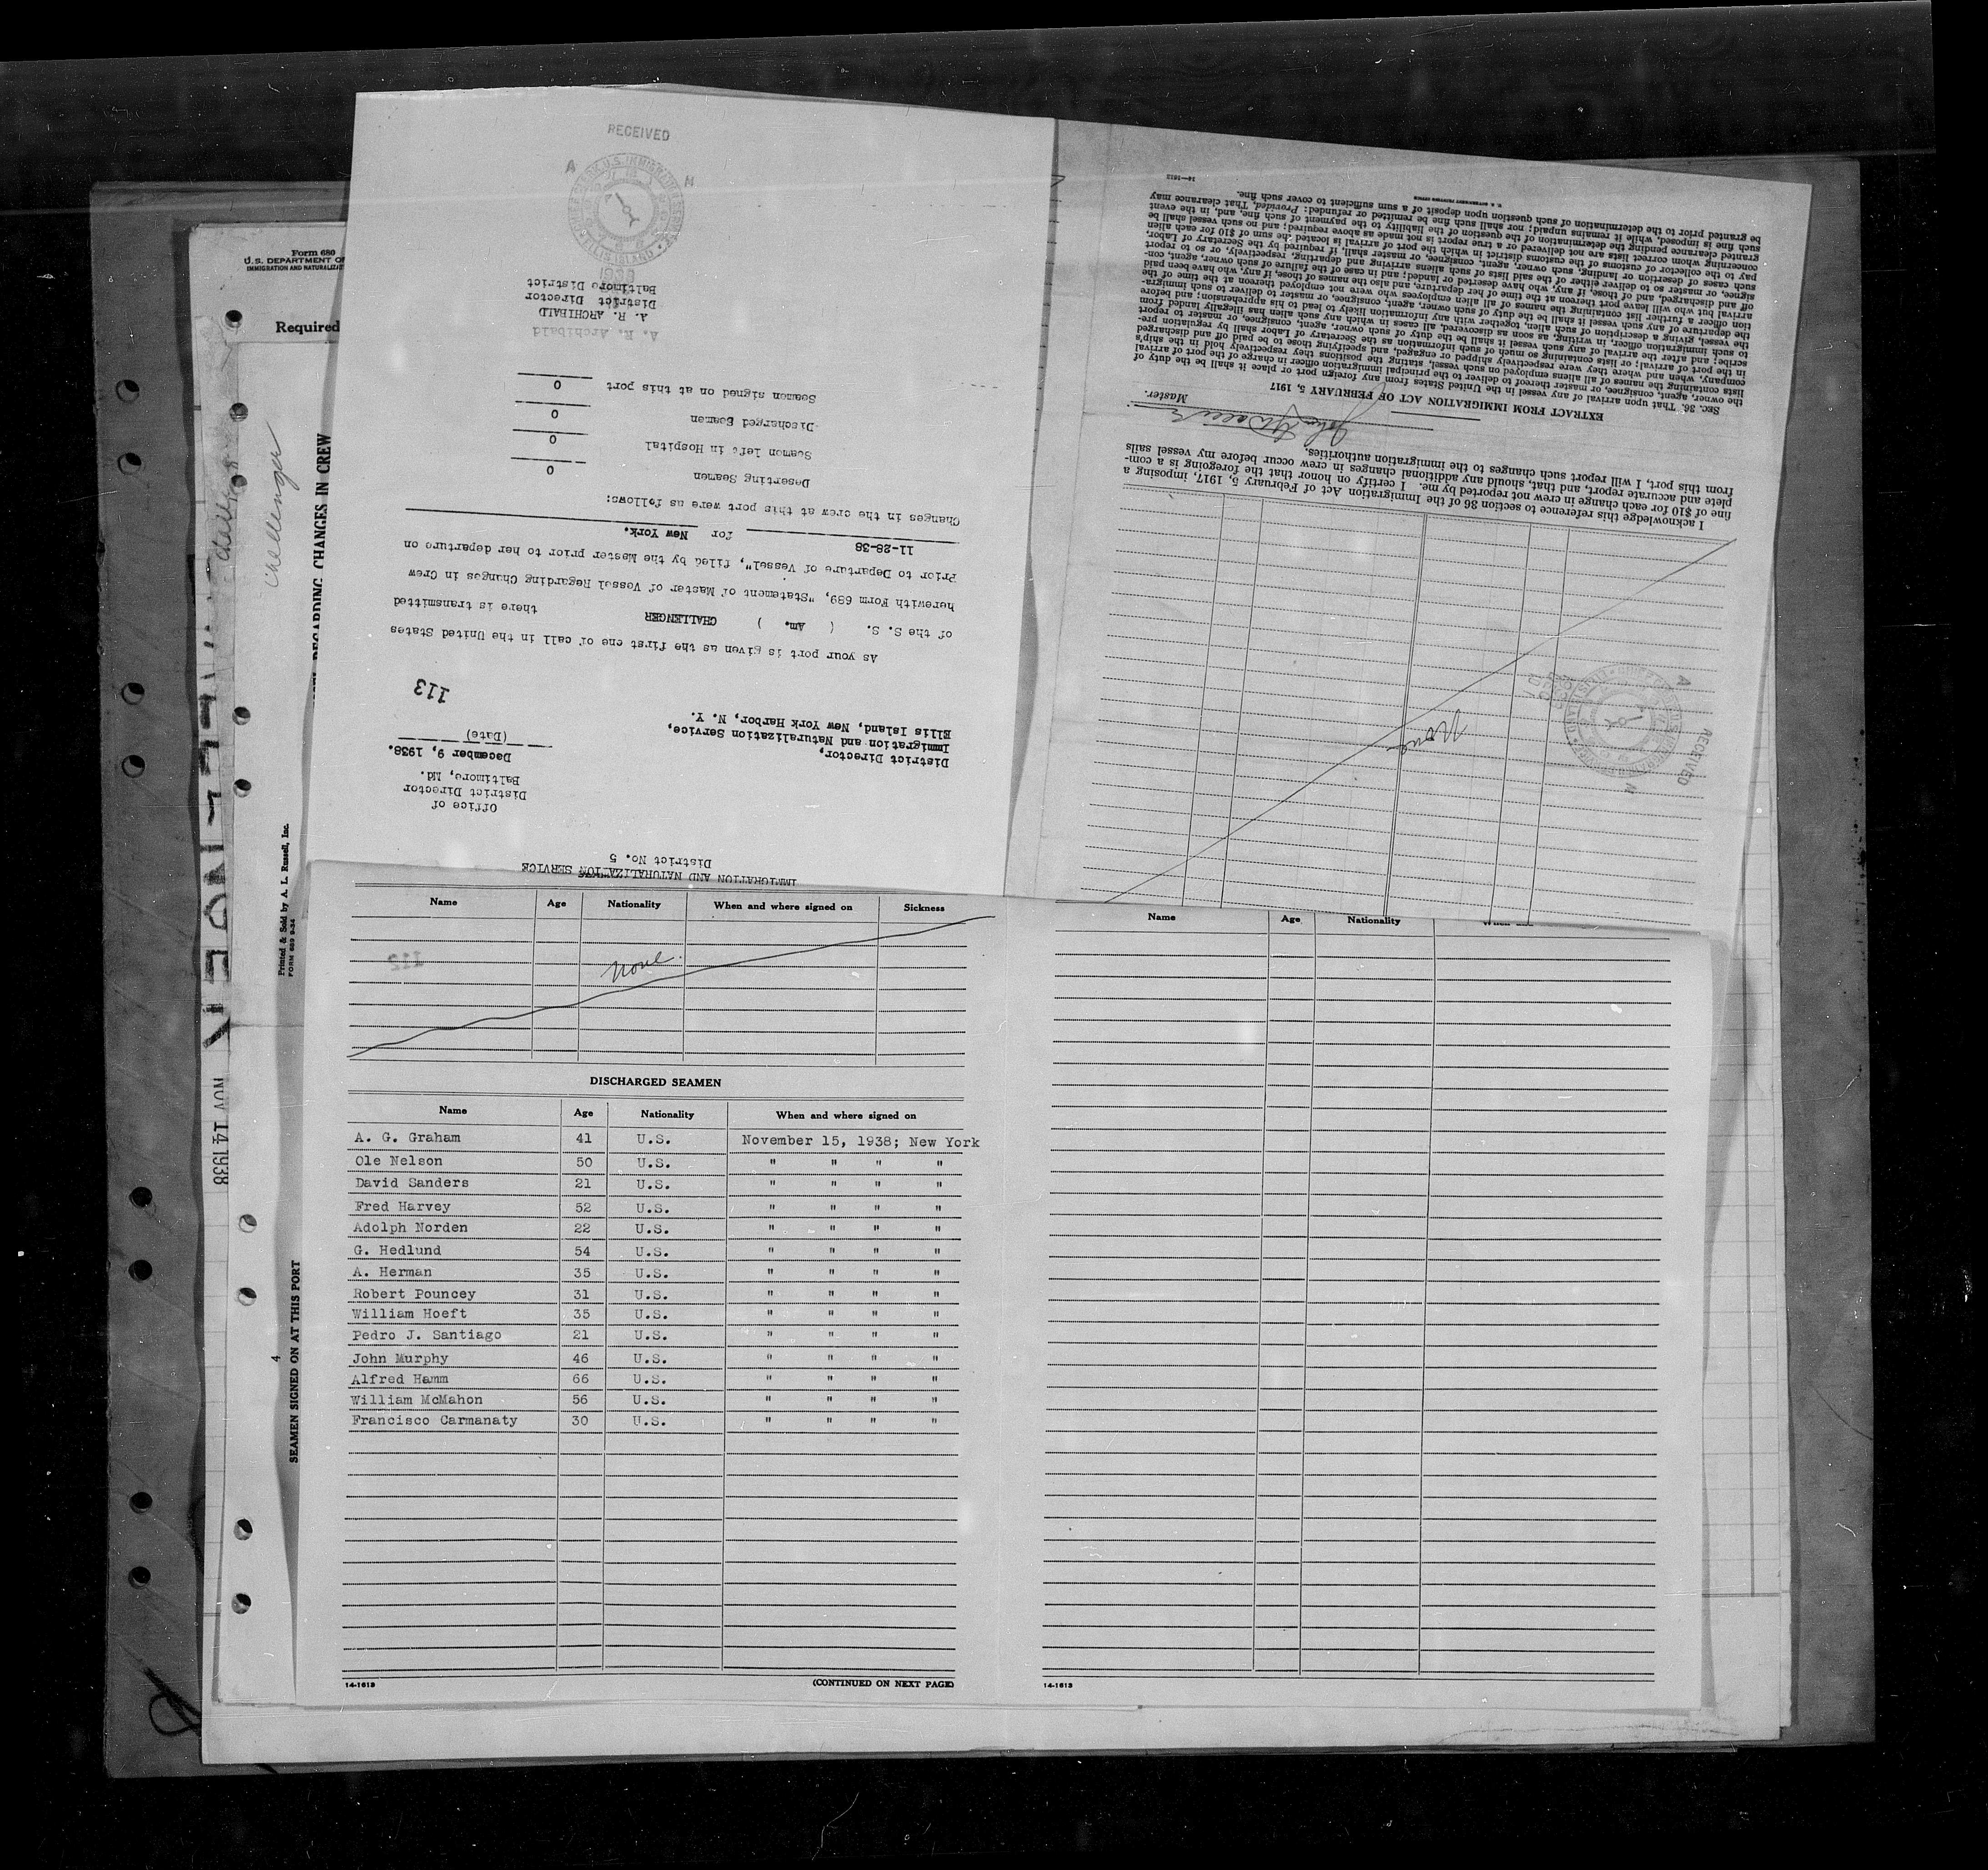 Form 680
U.S. DEPARTMENT OF
IMMIGRATION AND
Required
REGARDING CHANGES IN CREW
Challenger
Challenger
NOV 14 1938
Printed & Sold by A. L. Russell, Inc.
FORM 689 9-34
SEAMEN SIGNED ON AT THIS PORT
4
IMMIGRATION AND NATURALIZATION SERVICE
District No. 5
Office of
District Director
Baltimore, Md.
December 9, 1938.
(Date)
District Director,
Immigration and Naturalization Service,
Ellis Island, New York Harbor, N. Y.
113
As your port is given as the first one of call in the United States
of the S. S. ( Am. ) CHALLENGER there is transmitted
herewith Form 689, "Statement of Master of Vessel Regarding Changes in Crew
Prior to Departure of Vessel", filed by the Master prior to her departure on
11-28-38 for New York.
Changes in the crew at this port were as follows:
Deserting Seamen 0
Seamen left in Hospital 0
Discharged Seamen 0
Seamen signed on at this port 0
A. R. Archibald
A. R. ARCHIBALD
District Director
Baltimore District
RECEIVED
A M
ELLIS ISLAND
1938
RECEIVED
A M
None
I acknowledge this reference to section 36 of the Immigration Act of February 5, 1917, imposing a
fine of $10 for each change in crew not reported by me. I certify on honor that the foregoing is a com-
plete and accurate report, and that, should any additional changes in crew occur before my vessel sails
from this port, I will report such changes to the immigration authorities.
Master.
EXTRACT FROM IMMIGRATION ACT OF FEBRUARY 5, 1917
Sec. 36. That upon arrival of any vessel in the United States from any foreign port or place it shall be the duty of
the owner, agent, consignee, or master thereof to deliver to the principal immigration officer in charge of the port of arrival
lists containing the names of all aliens employed on such vessel, stating the positions they respectively hold in the ship's
company, when and where they were respectively shipped or engaged, and specifying those to be paid off and discharged
in the port of arrival; or lists containing so much of such information as the Secretary of Labor shall by regulation pre-
scribe; and after the arrival of any such vessel it shall be the duty of such owner, agent, consignee, or master to report
to such immigration officer, in writing, as soon as discovered, all cases in which any such alien has illegally landed from
the vessel, giving a description of such alien, together with any information likely to lead to his apprehension; and before
the departure of any such vessel it shall be the duty of such owner, agent, consignee, or master to deliver to such immigra-
tion officer a further list containing the names of all alien employees who were not employed thereon at the time of the
arrival but who will leave port thereon at the time of her departure, and also the names of those, if any, who have been paid
off and discharged, and of those, if any, who have deserted or landed; and in case of the failure of such owner, agent, con-
signee, or master so to deliver either of the said lists of such aliens arriving and departing, respectively, or so to report
such cases of desertion or landing, such owner, agent, consignee, or master shall, if required by the Secretary of Labor,
pay to the collector of customs of the customs district in which the port of arrival is located the sum of $10 for each alien
concerning whom correct lists are not delivered or a true report is not made as above required; and no such vessel shall be
granted clearance pending the determination of the question of the liability to the payment of such fine, and, in the event
such fine is imposed, while it remains unpaid; nor shall such fine be remitted or refunded: Provided, That clearance may
be granted prior to the determination of such question upon deposit of a sum sufficient to cover such fine.
U. S. GOVERNMENT PRINTING OFFICE
14—1613
Name Age Nationality When and where signed on Sickness
112
None.
DISCHARGED SEAMEN
Name Age Nationality When and where signed on
A. G. Graham 41 U.S. November 15, 1938; New York
Ole Nelson 50 U.S. " " " "
David Sanders 21 U.S. " " " "
Fred Harvey 52 U.S. " " " "
Adolph Norden 22 U.S. " " " "
G. Hedlund 54 U.S. " " " "
A. Herman 35 U.S. " " " "
Robert Pouncey 31 U.S. " " " "
William Hoeft 35 U.S. " " " "
Pedro J. Santiago 21 U.S. " " " "
John Murphy 46 U.S. " " " "
Alfred Hamm 66 U.S. " " " "
William McMahon 56 U.S. " " " "
Francisco Carmanaty 30 U.S. " " " "
14-1613 (CONTINUED ON NEXT PAGE)
Name Age Nationality
14-1613